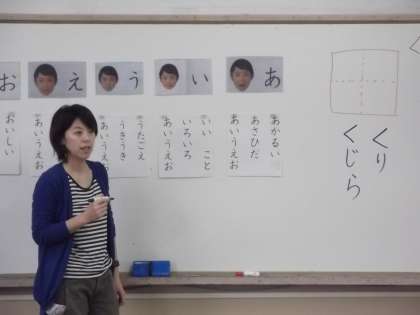 く
くり
くじら
あ
い
う
え
お
あかるい
あさひだ
あいうえお
いい こと
いろいろ
あいうえお
うたごえ
うきうき
あいうえお
おいしい